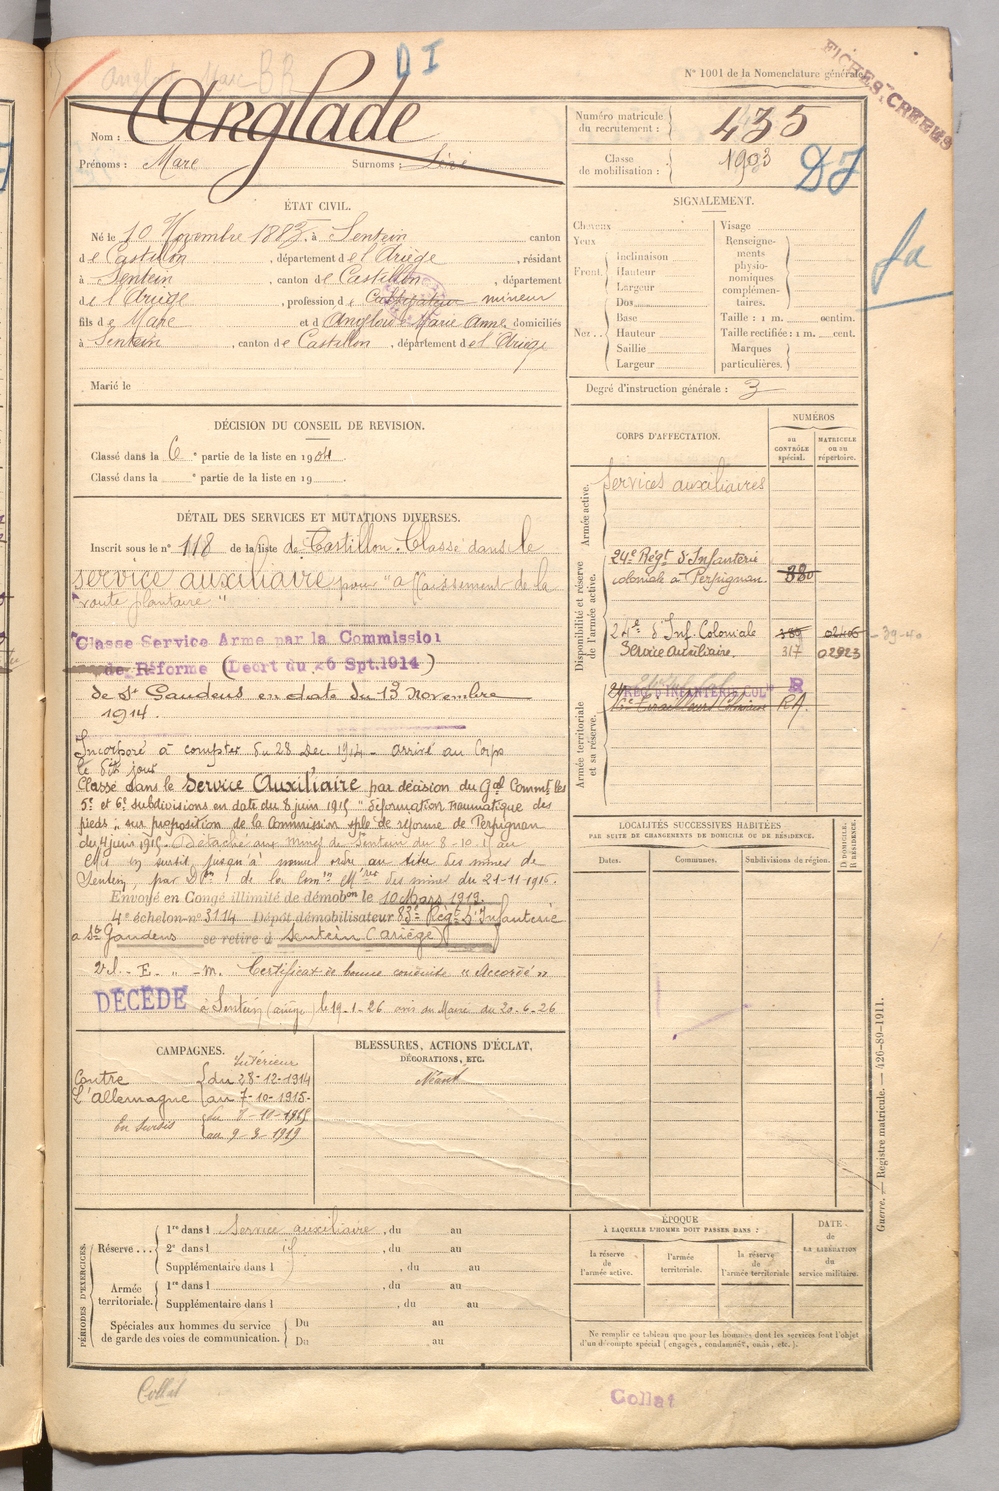 D I
N° 1001 de la Nomenclature générale
FICHES CRÉÉES
Nom : Anglade
Prénoms : Marc Surnoms :
Numéro matricule du recrutement : 435
Classe de mobilisation : 1903
DJ
ÉTAT CIVIL.
Né le 10 Novembre 1883, à Sentein canton
de Castillon, département de l'Ariège, résidant
à Sentein, canton de Castillon, département
de l'Ariège, profession de Cultivateur mineur
fils de Marc et d Anglade Marie Anne domiciliés
à Sentein, canton de Castillon, département de l'Ariège
Marié le
SIGNALEMENT.
Cheveux
Yeux
Front. Inclinaison
Hauteur
Largeur
Nez... Dos
Base
Hauteur
Saillie
Largeur
Visage
Renseignements physionomiques complémentaires.
Taille : 1 m. centim.
Taille rectifiée : 1 m. cent.
Marques particulières.
Degré d'instruction générale : 3
DÉCISION DU CONSEIL DE REVISION.
Classé dans la 6e partie de la liste en 1904.
Classé dans la e partie de la liste en 19 .
DÉTAIL DES SERVICES ET MUTATIONS DIVERSES.
Inscrit sous le n° 118 de la liste de Castillon. Classé dans le
service auxiliaire pour "affaissement de la
voute plantaire"
Classé Service Armé par la Commission
de Réforme (Décrt du 26 Spt.1914)
de St Gaudens en date du 13 Novembre
1914.
Incorporé à compter du 28 Dec. 1914 - arrivé au Corps
le dit jour
Classé dans le Service Auxiliaire par décision du Gal Commt les
5e et 6e subdivisions en date du 8 juin 1915 "déformation traumatique des
pieds", sur proposition de la Commission sple de réforme de Perpignan
du 4 juin 1915. Détaché aux mines de Sentein du 8-10-15 au
Mis en sursit jusqu'à nouvel ordre au titre des mines de
Sentein, par Don de la Comon Mre des mines du 21-11-1916.
Envoyé en Congé illimité de démobon le 10 Mars 1919.
4e échelon n° 3114 Dépôt démobilisateur 83e Régt d'Infanterie
a St Gaudens se retire à Sentein (Ariège)
Certificat de bonne conduite "Accordé"
DÉCÉDÉ à Sentein (ariège) le 19-1-26 avis du Maire du 20-6-26
CORPS D'AFFECTATION.
NUMÉROS
au CONTRÔLE spécial.
MATRICULE ou au répertoire.
Armée active.
Services auxiliaires
Disponibilité et réserve de l'armée active.
24e Régt d'Infanterie
coloniale à Perpignan 380
24e d'Inf. Coloniale 380 - 39-40
Service Auxiliaire. 317 02923
Armée territoriale et sa réserve.
REG D'INFANTERIE COLle R
RA.
LOCALITÉS SUCCESSIVES HABITÉES
PAR SUITE DE CHANGEMENTS DE DOMICILE OU DE RÉSIDENCE.
Dates. Communes. Subdivisions de région. D. DOMICILE. R. RÉSIDENCE.
CAMPAGNES.
Intérieur
Contre
L'Allemagne
du 28-12-1914
au 7-10-1915-
En Sursis
du 8-10-1915
au 9-3-1919
BLESSURES, ACTIONS D'ÉCLAT,
DÉCORATIONS, ETC.
Néant
PÉRIODES D'EXERCICES.
Réserve... 1re dans l Service auxiliaire, du au
2e dans l , du au
Supplémentaire dans l , du au
Armée territoriale. 1re dans l , du au
Supplémentaire dans l , du au
Spéciales aux hommes du service de garde des voies de communication. Du au
Du au
ÉPOQUE
À LAQUELLE L'HOMME DOIT PASSER DANS :
la réserve de l'armée active.
l'armée territoriale.
la réserve de l'armée territoriale
DATE de LA LIBÉRATION du service militaire.
Ne remplir ce tableau que pour les hommes dont les services font l'objet
d'un décompte spécial (engagés, condamnés, omis, etc.).
Guerre. — Registre matricule. — 426-89-1911.
Collat
Collat